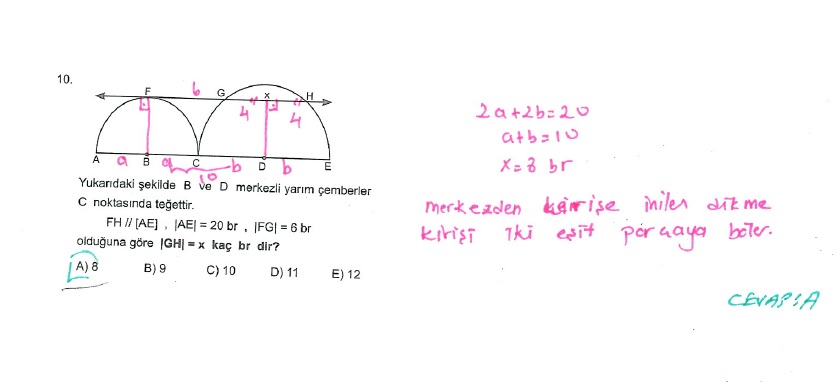 10.
F 6 G x H
4 4
A a B a C b D b E
10
Yukarıdaki şekilde B ve D merkezli yarım çemberler
C noktasında teğettir.
FH // [AE] , |AE| = 20 br , |FG| = 6 br
olduğuna göre |GH| = x kaç br dir?
A) 8 B) 9 C) 10 D) 11 E) 12
2a+2b=20
a+b=10
x=8 br
merkezden kirişe inilen dikme
kirişi iki eşit parçaya böler.
CEVAP: A